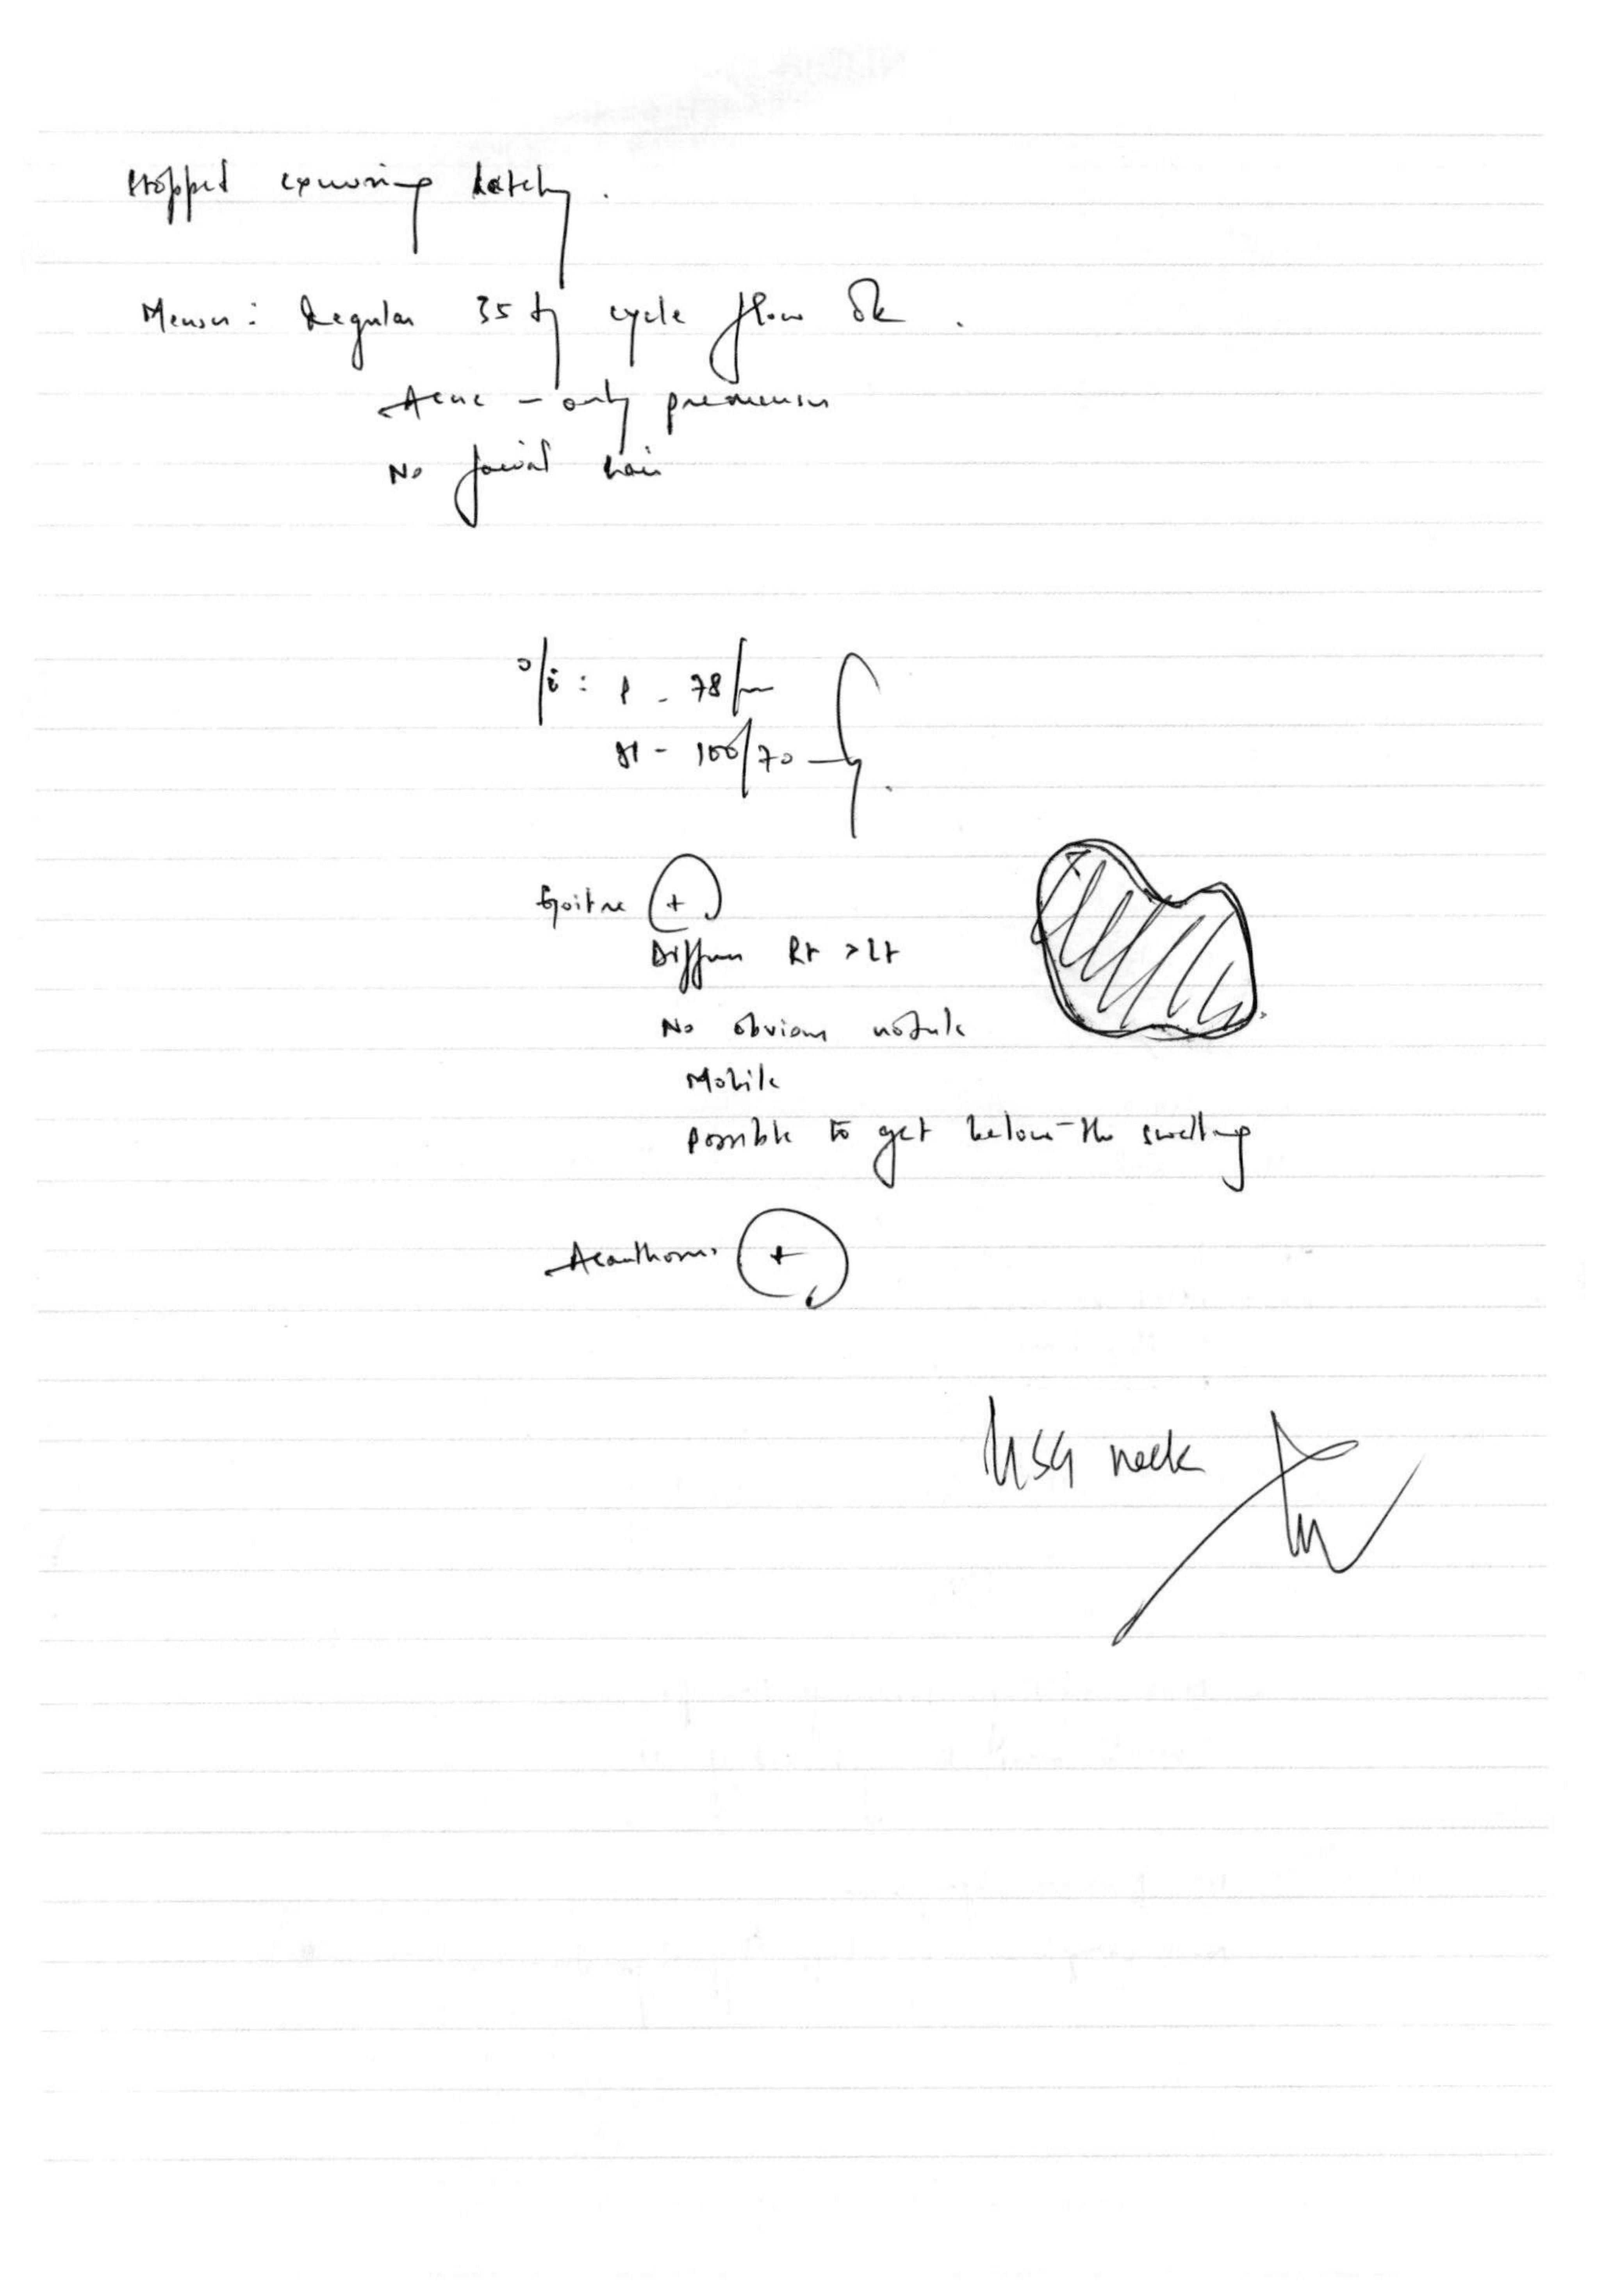 Stopped exercising lately.
Menses: Regular 35 dy cycle flow Ok.
Acne - only premenses
No facial hair
O/E: P - 78/m
BP - 100/70
Goitre +
Diffuse Rt > Lt
No obvious nodule
Mobile
Possible to get below the swelling
Acanthosis +
USG neck